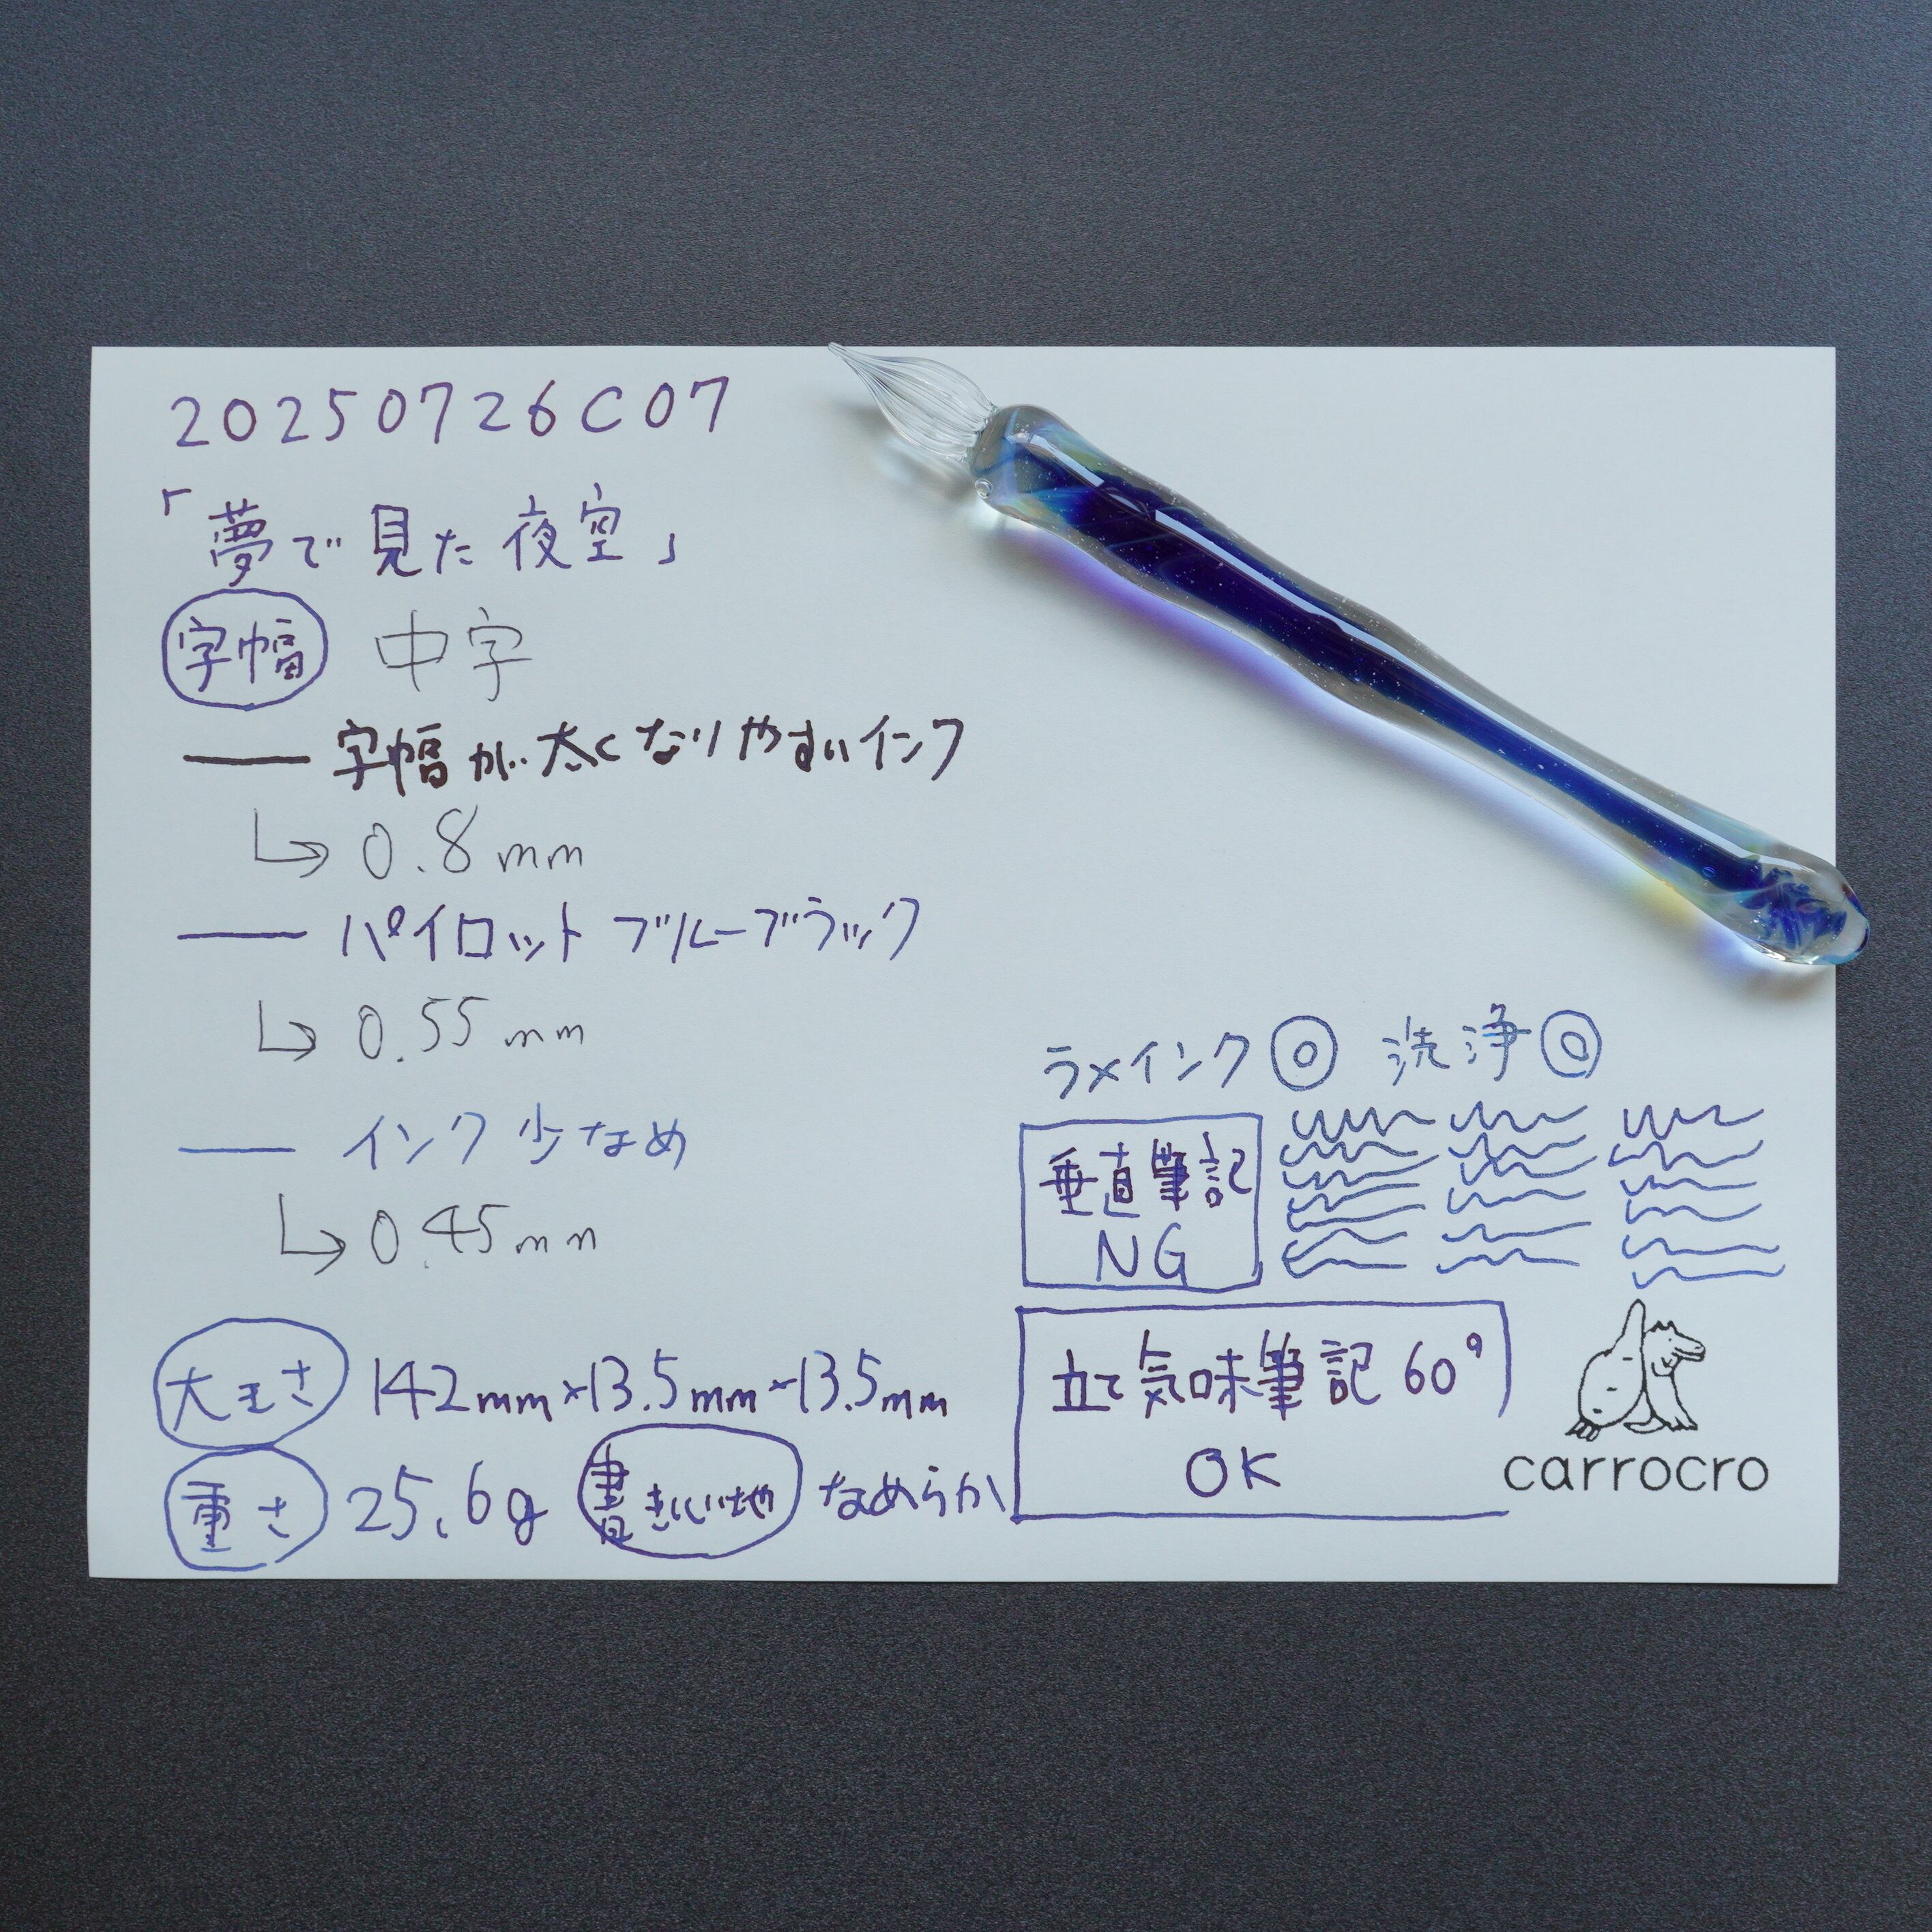 20250726C07
「夢で見た夜空」
字幅 中字
字幅が太くなりやすいインク
0.8mm
パイロット ブルーブラック
0.55mm
インク少なめ
0.45mm
大きさ 142mm×13.5mm×13.5mm
重さ 25.6g 書き心地 なめらか
ラメインク◎ 洗浄◎
垂直筆記
NG
立て気味筆記60°
OK
carrocro